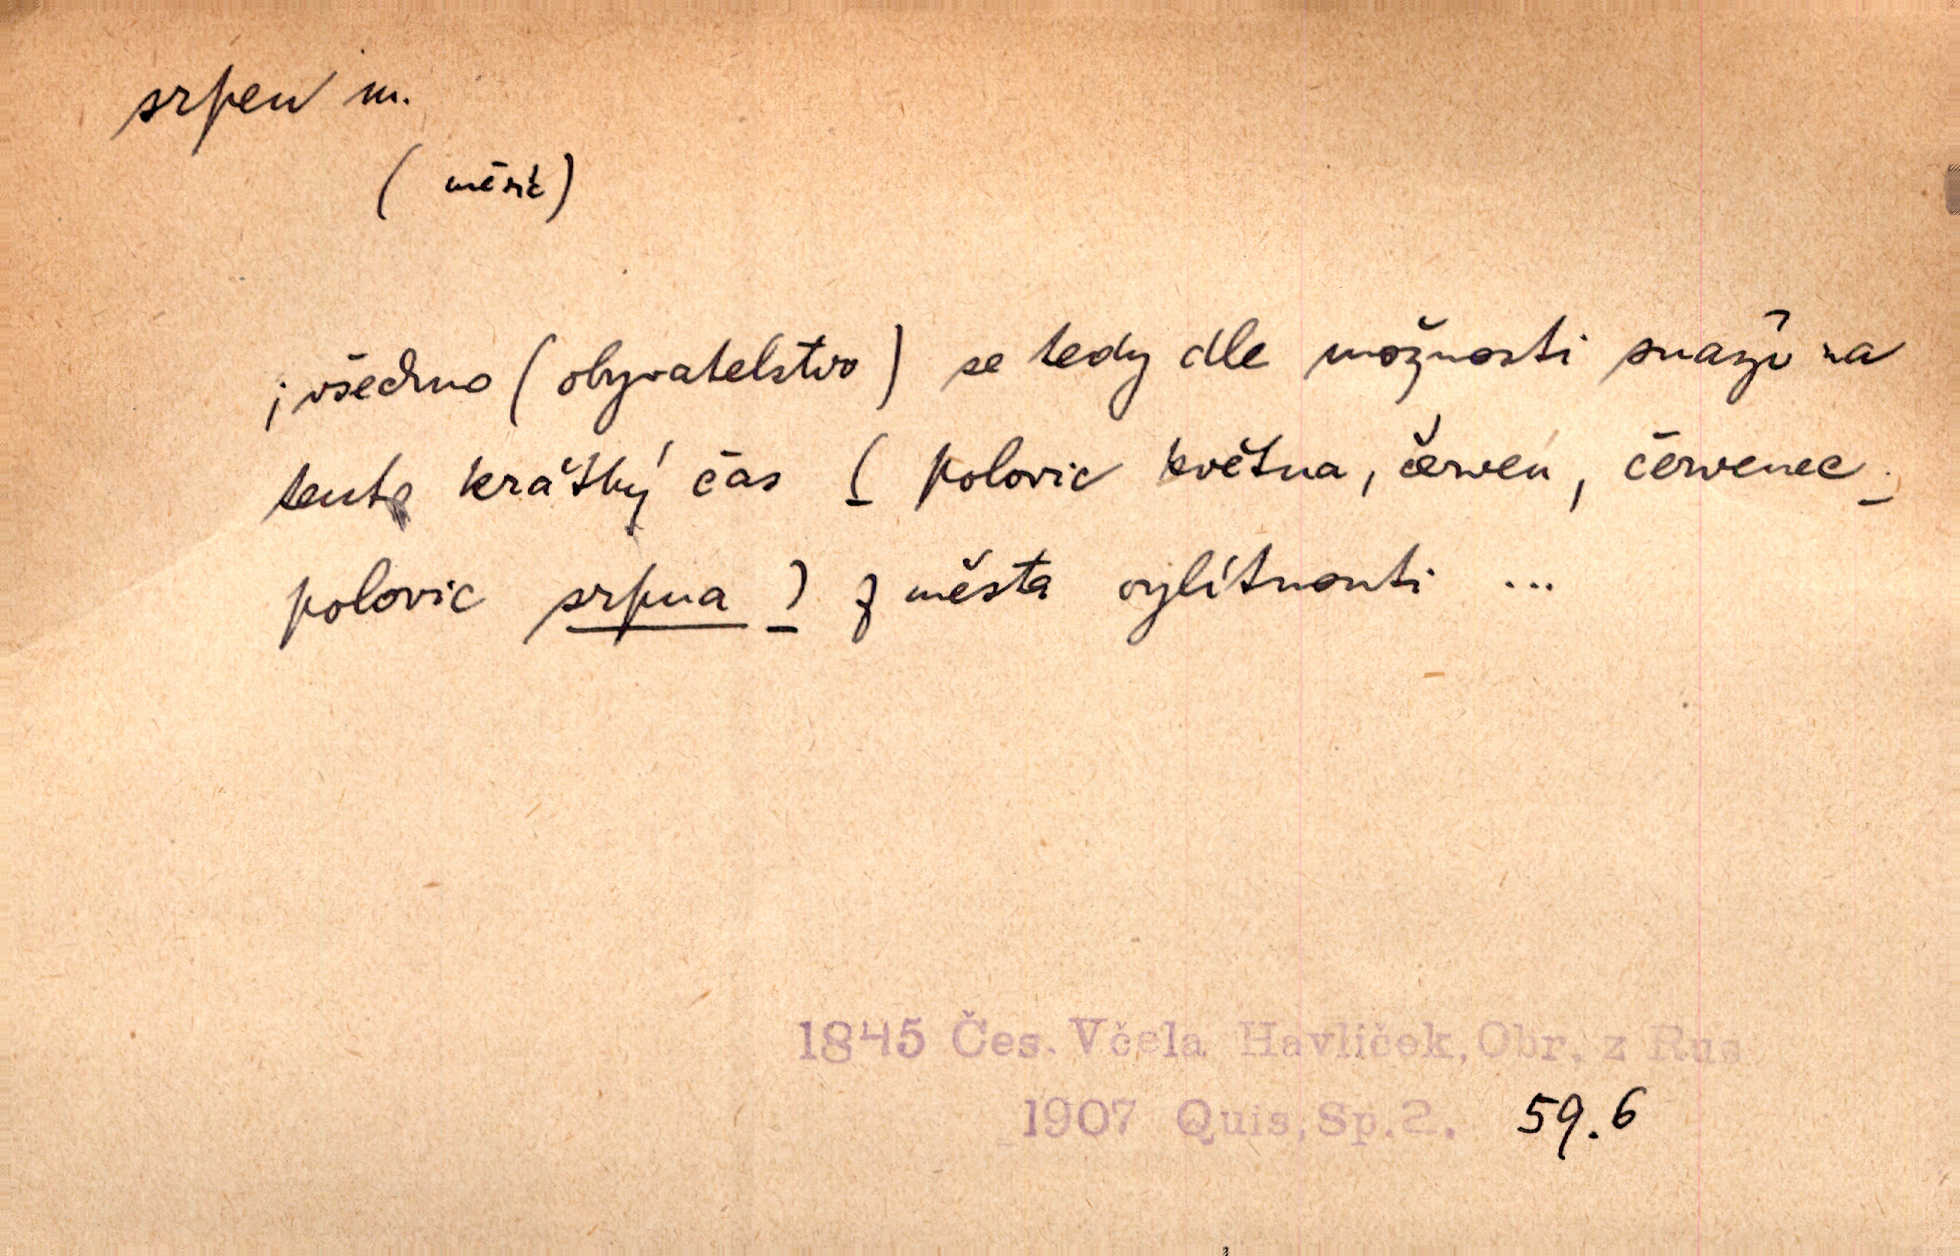 srpen m.
(měsíc)
; všechno (obyvatelstvo) se tedy dle možnosti snaží na
tento krátký čas ( polovic května, červen, červenec
polovic srpna ) z města vylítnouti ...
1845 Čes. Včela Havlíček, Obr. z Rus
1907 Quis, Sp.2. 59.6